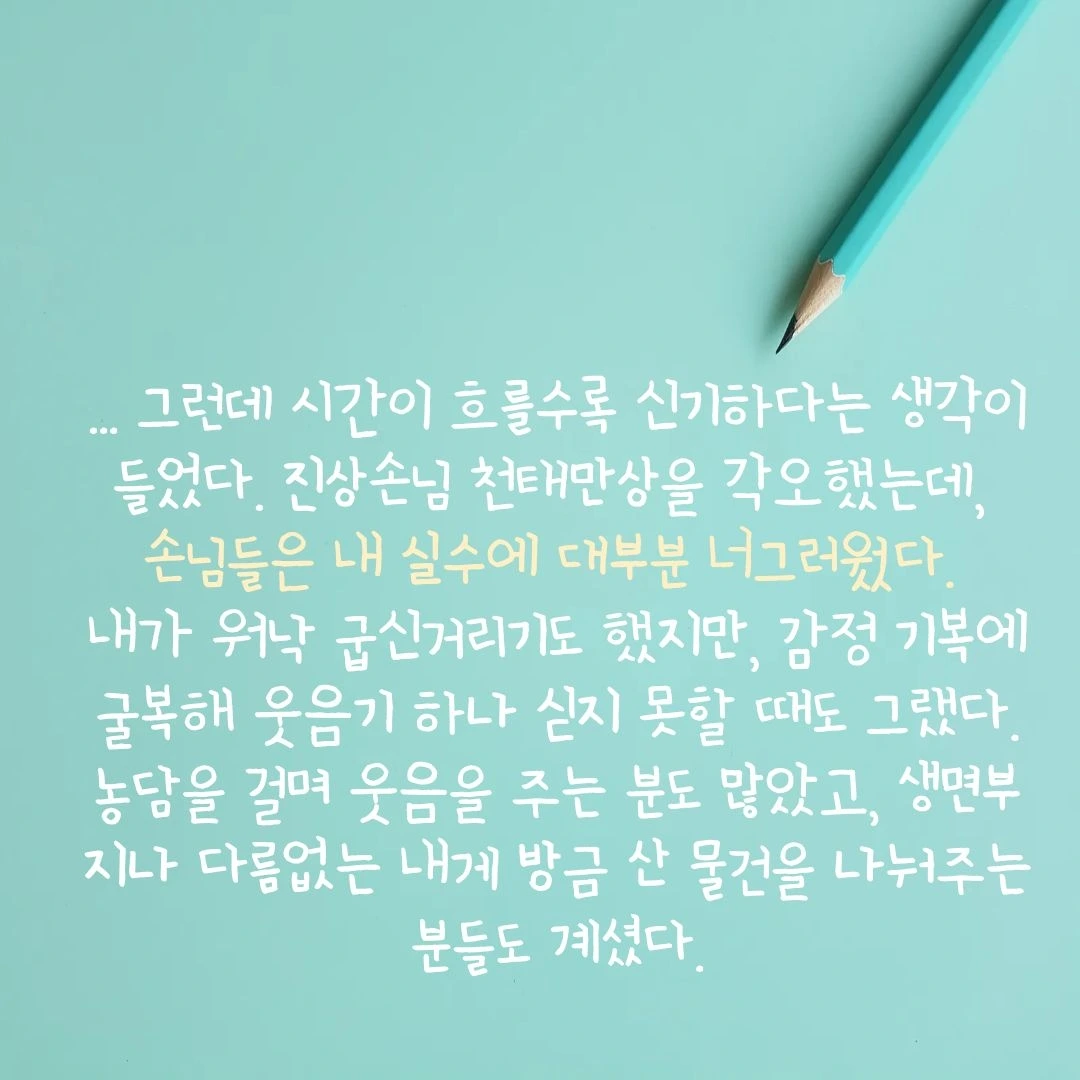 ... 그런데 시간이 흐를수록 신기하다는 생각이
들었다. 진상손님 천태만상을 각오했는데,
손님들은 내 실수에 대부분 너그러웠다.
내가 워낙 굽신거리기도 했지만, 감정 기복에
굴복해 웃음기 하나 싣지 못할 때도 그랬다.
농담을 걸며 웃음을 주는 분도 많았고, 생면부
지나 다름없는 내게 방금 산 물건을 나눠주는
분들도 계셨다.